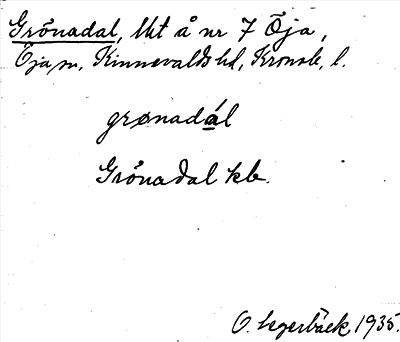 Grönadal, lht å nr 7 Öja,
Öja sn, Kinnevalds hd, Kronob. l.
grønadál
Grönadal kb.
O. Segerbäck 1935.